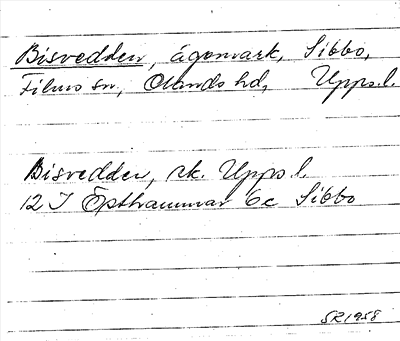 Bisvedden, ägomark, Sibbo,
Films sn, Olands hd, Upps.l.
Bisvedden, rk. Upps l.
12 I Östhammar 6c Sibbo
SR1958